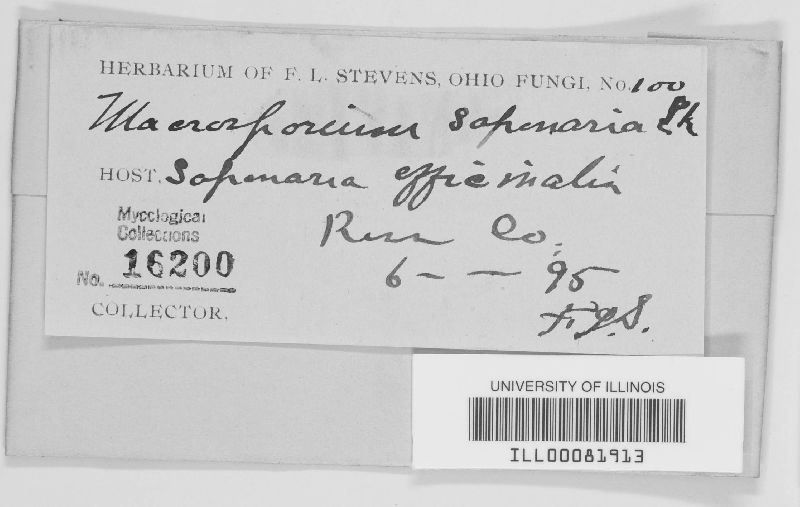 HERBARIUM OF F. L. STEVENS, OHIO FUNGI, No. 100
Macrosporium saponaria Pk
HOST, Saponaria officinalis
Mycological
Collections
No. 16200
Ross Co.
6 – – 95
COLLECTOR,
F.L.S.
UNIVERSITY OF ILLINOIS
ILL00081913